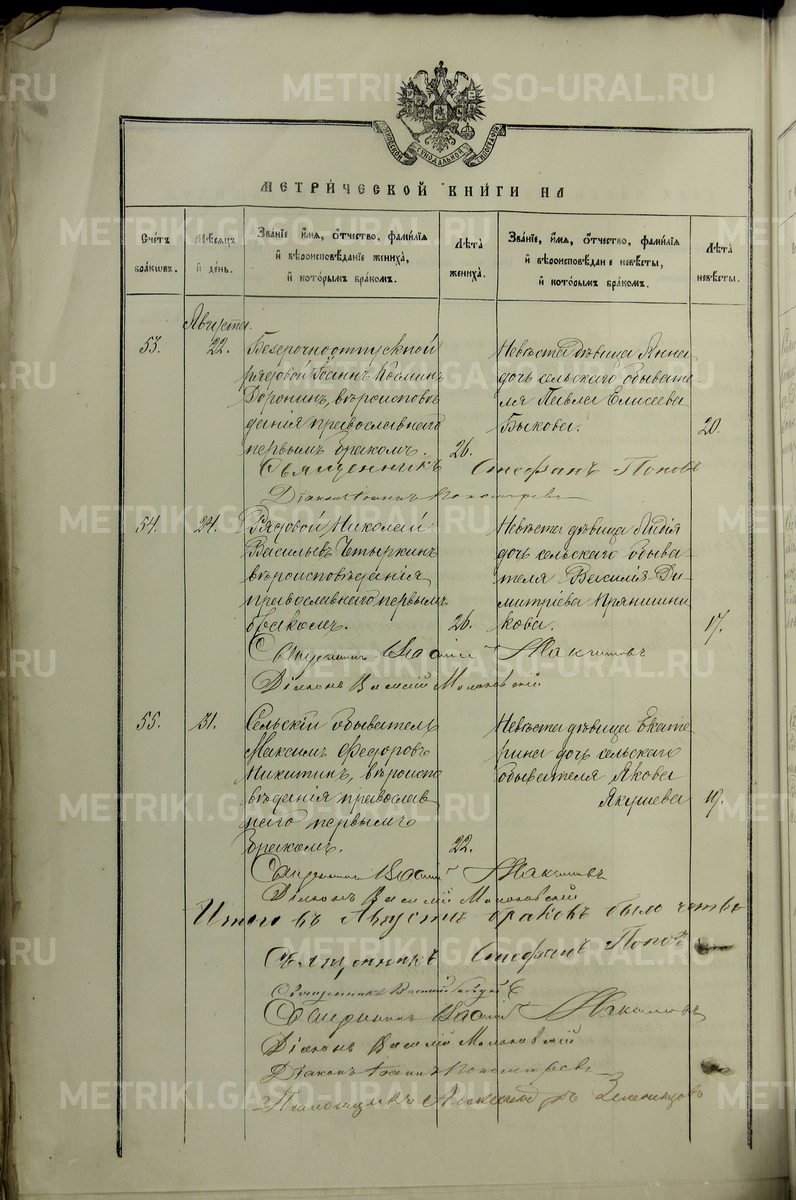 METRIKI.GASO-URAL.RU
СѴНОДАЛЬНОЙ ТИПОГРАФІИ
МЕТРИ́ЧЕСКОЙ КНИ́ГИ НА
Сче́тъ бра́кωвъ.
Мѣ́сяцъ и҆ де́нь.
Зва́нїе, и҆́мѧ, ѻ҆́тчество, фами́лїѧ
и҆ вѣроисповѣ́данїе жениха̀,
и҆ кото́рымъ бра́комъ.
Лѣ́та жениха̀.
Зва́нїе, и҆́мѧ, ѻ҆́тчество, фами́лїѧ
и҆ вѣроисповѣ́данїе невѣ́сты,
и҆ кото́рымъ бра́комъ.
Лѣ́та невѣ́сты.
Августа.
53.
22.
Безсрочноотпускной
рядовой Іоаннъ Косминъ
Доронинъ, вѣроисповѣ
данія православнаго
первымъ бракомъ.
26.
Невѣста дѣвица Анна
дочь сельскаго обывате
ля Павла Елисеева
Быкова.
20.
Священникъ Стефанъ Поповъ
Діаконъ Іоаннъ Пономаревъ
54.
24.
Рядовой Николай
Васильевъ Четыркинъ
вѣроисповѣданія
православнаго первымъ
бракомъ.
26.
Невѣста дѣвица Лидія
дочь сельскаго обыва
теля Василія Ди
митріева Прянишни
кова.
17.
Священникъ Василій Максимовъ
Діаконъ Василій Молоковскій
55.
31.
Сельскій обыватель
Максимъ Федоровъ
Никитинъ, вѣроиспо
вѣданія православ
наго первымъ
бракомъ.
22.
Невѣста дѣвица Екате
рина дочь сельскаго
обывателя Якова
Якушева
19.
Священникъ Василій Максимовъ
Діаконъ Василій Молоковскій
Итого въ Августѣ браковъ было
Священникъ Стефанъ Поповъ
Священникъ Василій
Священникъ Василій Максимовъ
Діаконъ Василій Молоковскій
Діаконъ Іоаннъ Пономаревъ
Псаломщикъ Александръ Зеленцовъ